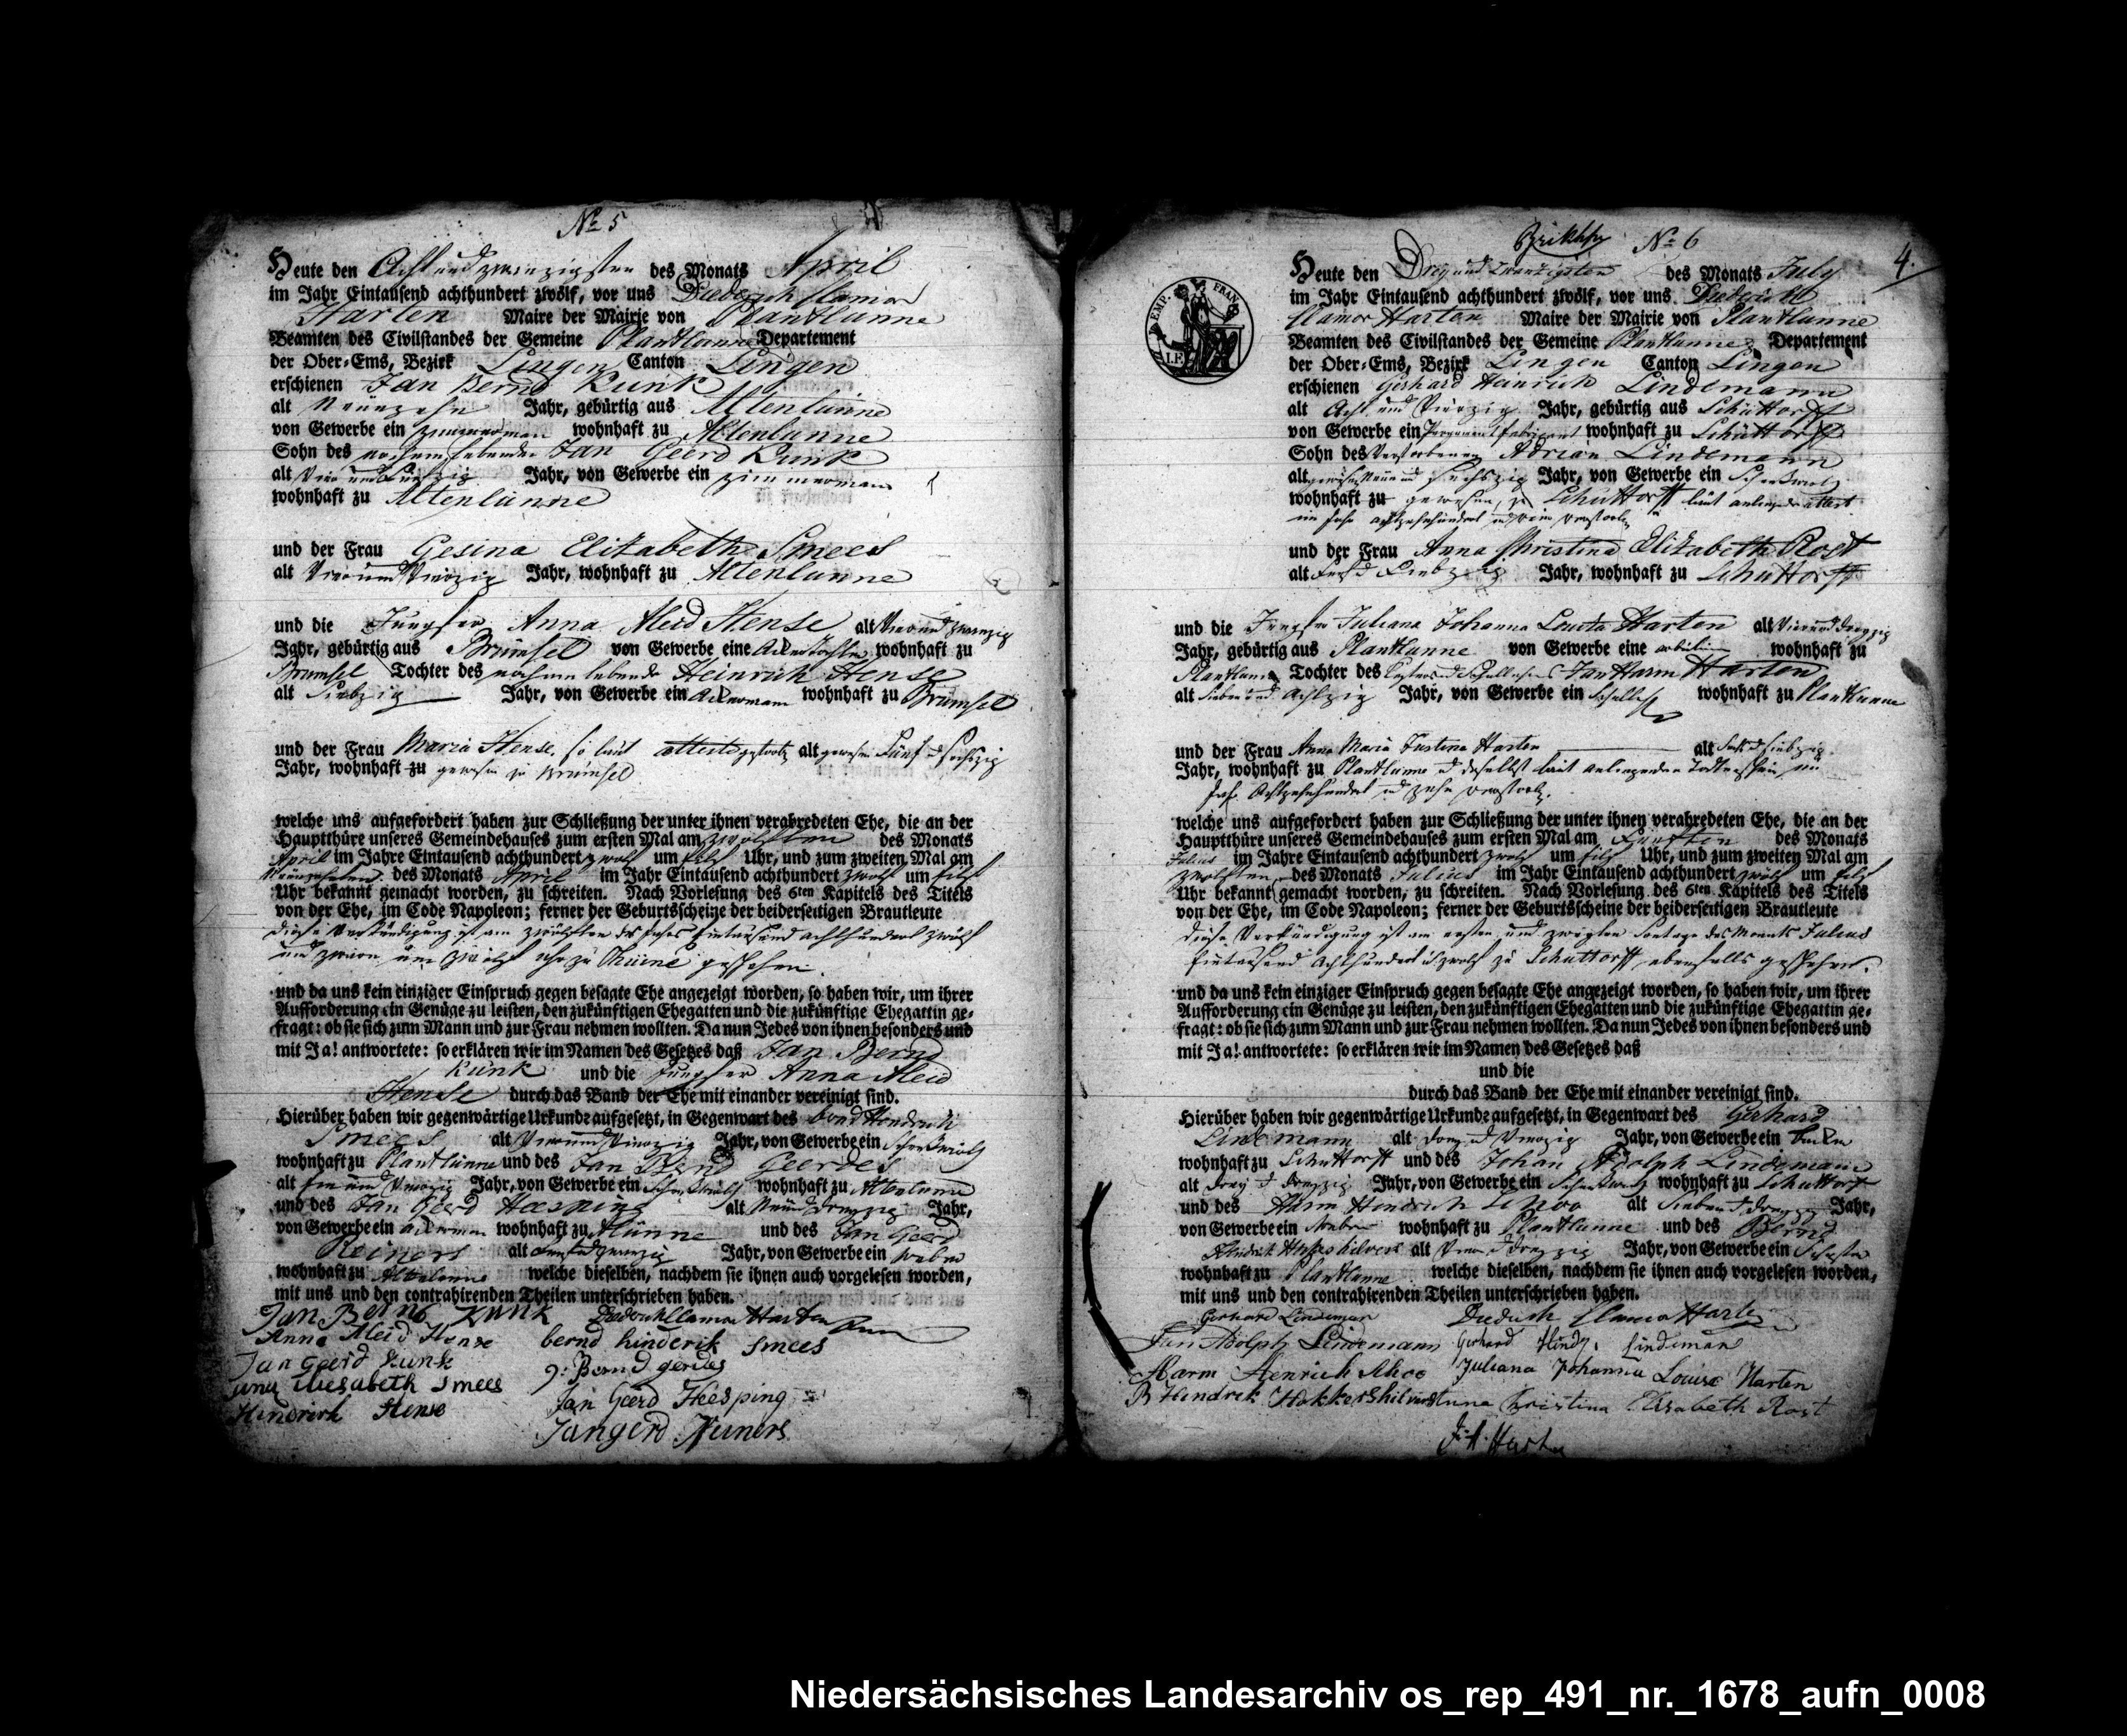 No 5
Heute den Acht und zwanzigsten des Monats April
im Jahr Eintausend achthundert zwölf, vor uns Diederich Clamor
Harten Maire der Mairie von Plantlünne
Beamten des Civilstandes der Gemeine Plantlünne Departement
der Ober-Ems, Bezirk Lingen Canton Lingen
erschienen Jan Bernd Kunk
alt Neunzehn Jahr, gebürtig aus Altenlünne
von Gewerbe ein zimmerman wohnhaft zu Altenlunne
Sohn des Jan Geerd Kunk
alt Vier und Jahr, von Gewerbe ein zimmermann
wohnhaft zu Altenlünne
und der Frau Gesina Elisabeth Smees
alt Vier und Vierzig Jahr, wohnhaft zu Altenlunne
und die Jungfer Anna Aleid Hense alt Vier und zwanzig
Jahr, gebürtig aus Brümsel von Gewerbe eine wohnhaft zu
Brümsel Tochter des noch lebende Heinrich Hense
alt Siebzig Jahr, von Gewerbe ein Ackermann wohnhaft zu Brümsel
und der Frau Maria Hense, so laut alt gewesen Fünf d sechszig
Jahr, wohnhaft zu gewesen zu Brümsel
welche uns aufgefordert haben zur Schließung der unter ihnen verabredeten Ehe, die an der
Hauptthüre unseres Gemeindehauses zum ersten Mal am zwölften des Monats
April im Jahre Eintausend achthundert zwölf um Uhr, und zum zweiten Mal am
Neunzehnten des Monats April im Jahr Eintausend achthundert zwölf um
Uhr bekannt gemacht worden, zu schreiten. Nach Vorlesung des 6ten Kapitels des Titels
von der Ehe, im Code Napoleon; ferner der Geburtsscheine der beiderseitigen Brautleute
diese Verkündigung ist am zwölften des Eintausend achthundert zwölf
und um zwölf uhr zu Thuine geschehen.
und da uns kein einziger Einspruch gegen besagte Ehe angezeigt worden, so haben wir, um ihrer
Aufforderung ein Genüge zu leisten, den zukünftigen Ehegatten und die zukünftige Ehegattin ge-
fragt: ob sie sich zum Mann und zur Frau nehmen wollten. Da nun Jedes von ihnen besonders und
mit Ja! antwortete: so erklären wir im Namen des Gesetzes daß Jan Bernd
Kunk und die Jungfer Anna Aleid
Hense durch das Band der Ehe mit einander vereinigt sind.
Hierüber haben wir gegenwärtige Urkunde aufgesetzt, in Gegenwart des Bernd Hendrich
Smees alt Vier und Vierzig Jahr, von Gewerbe ein
wohnhaft zu Plantlünne und des Jan Bernd Geerdes
alt und Vierzig Jahr, von Gewerbe ein wohnhaft zu Altenlunne
und des Jan Geerd Heesping alt Neun d dreyzig Jahr,
von Gewerbe ein Ackerman wohnhaft zu und des Jan Geerd
Reiners alt Jahr, von Gewerbe ein weber
wohnhaft zu Altenlünne welche dieselben, nachdem sie ihnen auch vorgelesen worden,
mit uns und den contrahirenden Theilen unterschrieben haben.
Jan Bernd Kunk Diederich Clamor Harten
Anna Aleid Hense bernd hinderik Smees
Jan Geerd Kunk g: Bernd gerdes
Elisabeth Smees Jan Geerd Heesping
Hindrick Hense Jangerd Reiners
No 6 4.
Heute den Drey und zwanzigsten des Monats July
im Jahr Eintausend achthundert zwölf, vor uns Diederich
Clamor Harten Maire der Mairie von Plantlunne
Beamten des Civilstandes der Gemeine Plantlunne Departement
der Ober-Ems, Bezirk Lingen Canton Lingen
erschienen Gerhard Heinrich Lindemann
alt Acht und Vierzig Jahr, gebürtig aus Schüttorff
von Gewerbe ein wohnhaft zu Schüttorff
Sohn des Verstorbenen Adrian Lindemann
alt gewesen Neun und Sechszig Jahr, von Gewerbe ein
wohnhaft zu gewesen zu Schüttorff laut attest
im Jahr achtzehnhundert und verstorben
und der Frau Anna Christina Elisabeth Rost
alt Siebzig Jahr, wohnhaft zu Schuttorff
und die Jungfer Juliana Johanna Louisa Harten alt Vier und dreyzig
Jahr, gebürtig aus Plantlunne von Gewerbe eine wohnhaft zu
Plantlunne Tochter des Jan Harm Harten
alt Sieben und Achtzig Jahr, von Gewerbe ein wohnhaft zu Plantlunne
und der Frau Anna Maria Justina Harten alt Siebzig
Jahr, wohnhaft zu Plantlunne d daselbst laut anliegenden Todtenschein, im
Jahr Achtzehnhundert d zehn verstorben.
welche uns aufgefordert haben zur Schließung der unter ihnen verabredeten Ehe, die an der
Hauptthüre unseres Gemeindehauses zum ersten Mal am Fünften des Monats
Julius im Jahre Eintausend achthundert zwölf um Uhr, und zum zweiten Mal am
zwölften des Monats Julius im Jahr Eintausend achthundert zwölf um
Uhr bekannt gemacht worden, zu schreiten. Nach Vorlesung des 6ten Kapitels des Titels
von der Ehe, im Code Napoleon; ferner der Geburtsscheine der beiderseitigen Brautleute
diese Verkündigung ist am ersten und zweyten Sontage des Monats Julius
Eintausend Achthundert zwölf zu Schuttorff ebenfalls geschehen.
und da uns kein einziger Einspruch gegen besagte Ehe angezeigt worden, so haben wir, um ihrer
Aufforderung ein Genüge zu leisten, den zukünftigen Ehegatten und die zukünftige Ehegattin ge-
fragt: ob sie sich zum Mann und zur Frau nehmen wollten. Da nun Jedes von ihnen besonders und
mit Ja! antwortete: so erklären wir im Namen des Gesetzes daß
und die
durch das Band der Ehe mit einander vereinigt sind.
Hierüber haben wir gegenwärtige Urkunde aufgesetzt, in Gegenwart des Gerhard
Lindemann alt drey d Vierzig Jahr, von Gewerbe ein
wohnhaft zu Schuttorff und des Johan Adolph Lindemann
alt drey d dreyzig Jahr, von Gewerbe ein wohnhaft zu Schuttorf
und des Harm Hendrich alt Sieben d dreyzig Jahr,
von Gewerbe ein weber wohnhaft zu Plantlunne und des Bernd
Hendrich alt Vier d dreyzig Jahr, von Gewerbe ein
wohnhaft zu Plantlunne welche dieselben, nachdem sie ihnen auch vorgelesen worden,
mit uns und den contrahirenden Theilen unterschrieben haben.
Gerhard Lindeman Diedrich Clamor Harten
Jan Adolph Lindemann Gerhard Hindr. Lindeman
Harm Henrich Juliana Johanna Louise Harten
B Hendrik Anna Christina Elisabeth Rost
J. H. Harten
EMP. FRAN.
Niedersächsisches Landesarchiv os_rep_491_nr._1678_aufn_0008